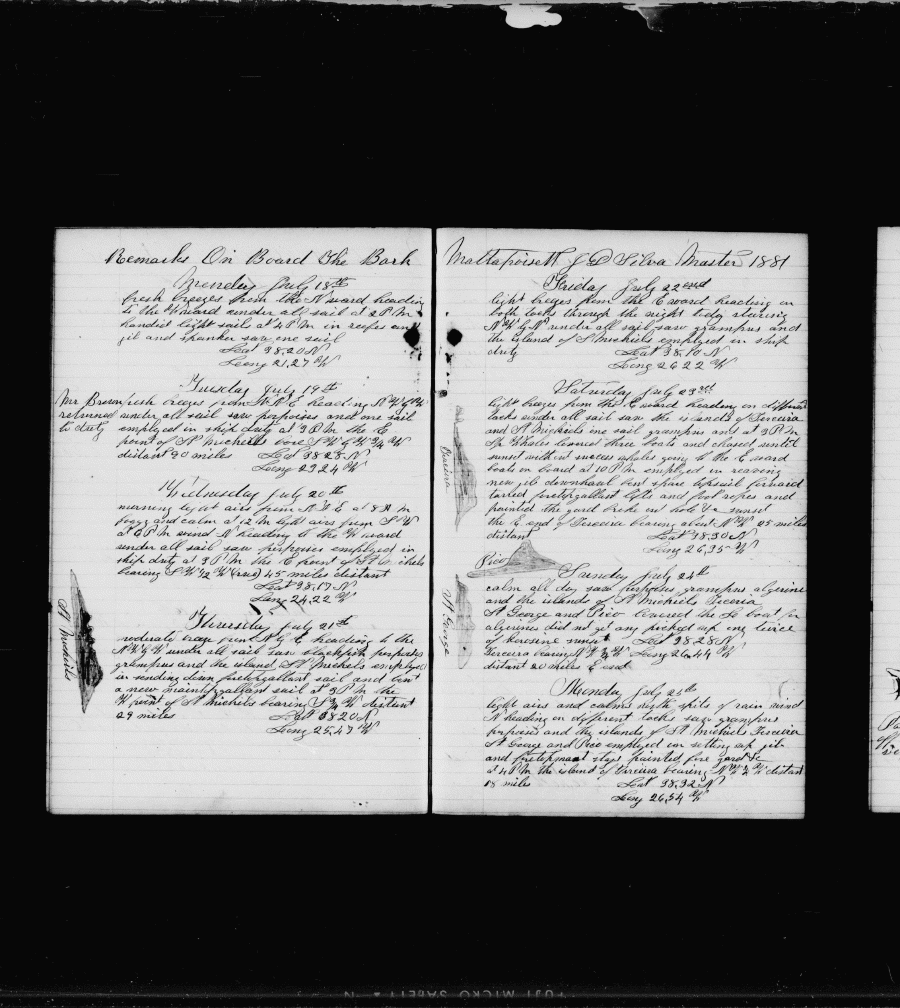 Remarks On Board The Bark
Monday July 18th
fresh breezes from the N ward heading
to the W ward under all sail at 2 P M
handed light sails at 4 P M in reefes and
jib and spanker saw one sail
Lat 38,20 N
Long 21,27 W
Tuesday July 19th
Mr Brown
returned
to duty
fresh breezes from N N E heading N W by W
under all sail saw porpoises and one sail
employed in ship duty at 3 P M the E
point of St Michiels bore S W by W 3/4 W
distant 90 miles Lat 38 28 N
Long 23 24 W
Wednesday July 20th
morning light airs from N N E at 8 A M
foggy and calm at 12 M light airs from S W
at 6 P M wind N heading to the W ward
under all sail saw porpoises employed in
ship duty at 3 P M the E point of St Michiels
bearing S W 1/2 W (true) 45 miles distant
Lat 38,17 N
Long 24,22 W
Thursday July 21th
moderate breeze from N by E heading to the
N W by W under all sail saw blackfish porpoises
grampus and the island St Michiels employed
in sending down foretopgallant sail and bent
a new maintopgallant sail at 3 P M the
W point of St Michiels bearing S 3/4 W distant
29 miles Lat 38 20 N
Long 25,47 W
St Michiels
Mattapoisett J D Silva Master 1881
Friday July 22end
light breezes from the E ward heading on
both tacks through the night today steering
N W by N under all sail saw grampus and
the island of St Michiels employed in ship
duty Lat 38,10 N
Long 26 22 W
Saturday July 23rd
light breezes from the E ward heading on different
tacks under all sail saw the islands of Terceira
and St Michiels one sail grampus and at 3 P M
Sp Whales lowered three boats and chased until
sunset without success whales going to the E ward
boats on board at 10 P M employed in reaving
new jib downhaul bent spare topsail forward
tarred foretopgallant lifts and foot ropes and
painted the yard broke out hold &c sunset
the E end of Terceira bearing about N W 25 miles
distant Lat 38,30 N
Long 26,35 W
Terceira
Pico
St George
Sunday July 24th
calm all day saw porpoises grampus algerine
and the islands of St Michiels Terceria
St George and Pico lowered the boat for
algerines did not get any picked up one tierce
of kerosine sunset Lat 38 28 N
Terceira bearing N W 1/2 W Long 26,44 W
distant 20 miles E end
Monday July 25th
light airs and calms night spits of rain wind
N heading on different tacks saw grampus
porpoises and the islands of St Michiels Terceira
St George and Pico employed in setting up jib
and foretopmast stays painted fore yard &c
at 4 P M the island of Terceira bearing N W 1/2 W distant
18 miles Lat 38,32 N
Long 26,54 W
FUJI MICRO SAFETY